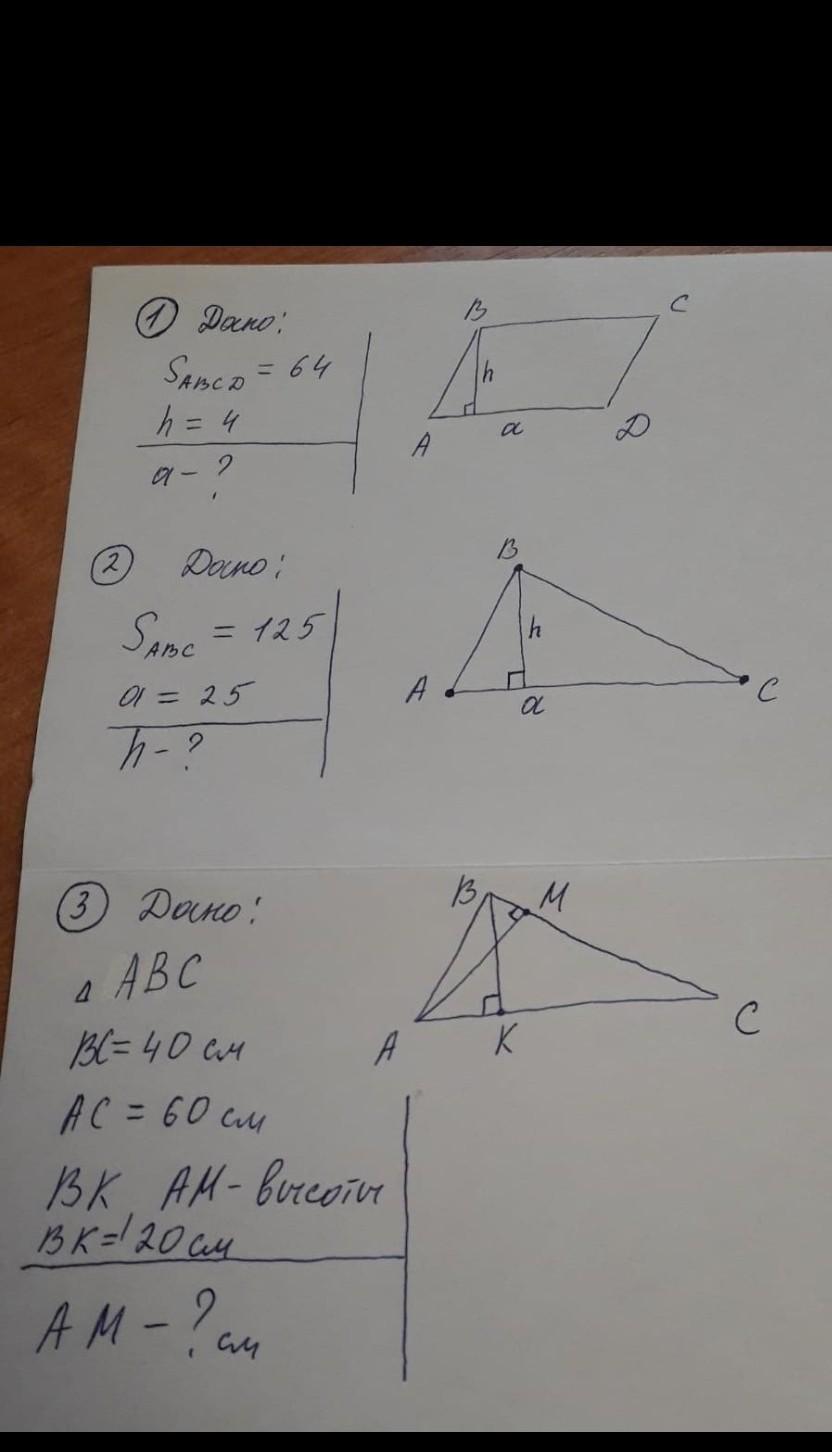 ① Дано:
S_ABCD = 64
h = 4
a - ?
B
C
h
A
a
D
② Дано:
S_ABC = 125
a = 25
h - ?
B
h
A
a
C
③ Дано:
Δ ABC
BC = 40 см
AC = 60 см
BK AM - высоты
BK = 20 см
AM - ? см
B
M
A
K
C